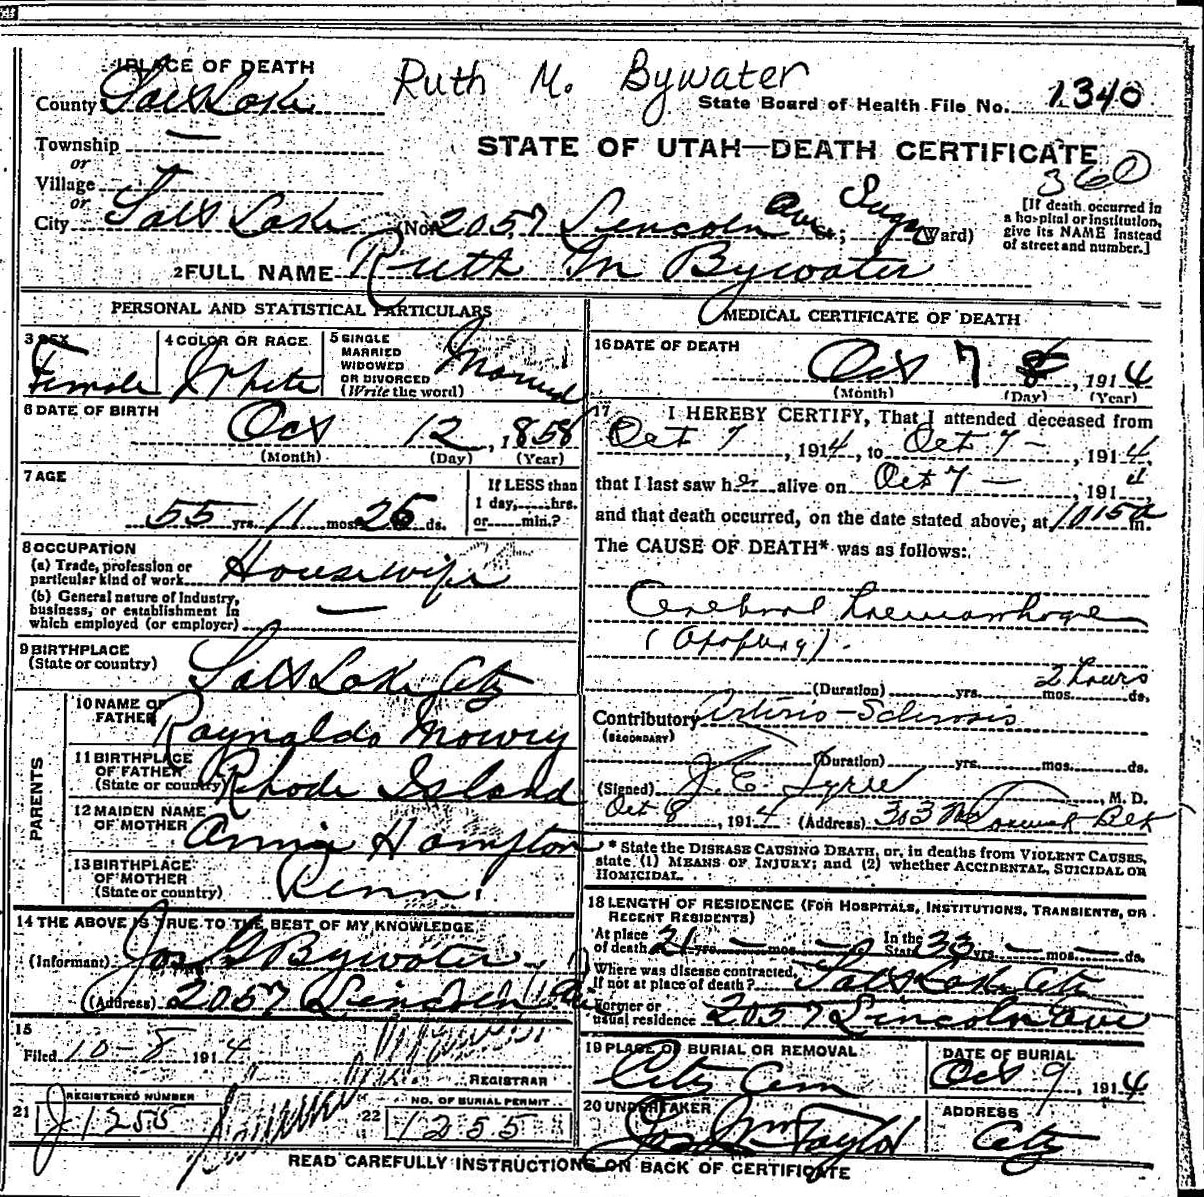 1 PLACE OF DEATH
Ruth M. Bywater
County Salt Lake
State Board of Health File No. 1340
Township
or
STATE OF UTAH—DEATH CERTIFICATE
360
Village
or
City Salt Lake (No. 2057 Lincoln Ave St.; Sugar Ward)
[If death occurred in
a hospital or institution,
give its NAME instead
of street and number.]
2 FULL NAME Ruth M Bywater
PERSONAL AND STATISTICAL PARTICULARS
3 SEX
Female
4 COLOR OR RACE
White
5 SINGLE
MARRIED
WIDOWED
OR DIVORCED
(Write the word)
Married
6 DATE OF BIRTH
Oct 12, 1858
(Month) (Day) (Year)
7 AGE
55 yrs. 11 mos. 26 ds.
If LESS than
1 day, hrs.
or min.?
8 OCCUPATION
(a) Trade, profession or
particular kind of work Housewife
(b) General nature of Industry,
business, or establishment in
which employed (or employer)
9 BIRTHPLACE
(State or country) Salt Lake City
PARENTS
10 NAME OF
FATHER Raynaldo Mowry
11 BIRTHPLACE
OF FATHER
(State or country) Rhode Island
12 MAIDEN NAME
OF MOTHER Annie Hampton
13 BIRTHPLACE
OF MOTHER
(State or country) Penn.
14 THE ABOVE IS TRUE TO THE BEST OF MY KNOWLEDGE
(Informant) Jos G Bywater
(Address) 2057 Lincoln Av
15
Filed 10-8 1914
REGISTRAR
REGISTERED NUMBER
21 J 1255
NO. OF BURIAL PERMIT
22 1255
MEDICAL CERTIFICATE OF DEATH
16 DATE OF DEATH
Oct 7 8, 1914
(Month) (Day) (Year)
17 I HEREBY CERTIFY, That I attended deceased from
Oct 7, 1914, to Oct 7, 1914,
that I last saw her alive on Oct 7, 1914
and that death occurred, on the date stated above, at 1015a m.
The CAUSE OF DEATH* was as follows:
Cerebral haemorrhage
(Apoplexy).
(Duration) yrs. mos. 2 hours ds.
Contributory Arterio-Sclerosis
(SECONDARY)
(Duration) yrs. mos. ds.
(Signed) J. E. , M. D.
Oct 8, 1914 (Address) 303
* State the DISEASE CAUSING DEATH, or, in deaths from VIOLENT CAUSES,
state (1) MEANS OF INJURY; and (2) whether ACCIDENTAL, SUICIDAL OR
HOMICIDAL.
18 LENGTH OF RESIDENCE (FOR HOSPITALS, INSTITUTIONS, TRANSIENTS, OR
RECENT RESIDENTS)
At place
of death 21 yrs. — mos. — ds. In the State 33 yrs. — mos. — ds.
Where was disease contracted,
If not at place of death? Salt Lake City
Former or
usual residence 2057 Lincoln Ave
19 PLACE OF BURIAL OR REMOVAL
City Cem
DATE OF BURIAL
Oct 9, 1914
20 UNDERTAKER
Jos Wm Taylor
ADDRESS
City
READ CAREFULLY INSTRUCTIONS ON BACK OF CERTIFICATE